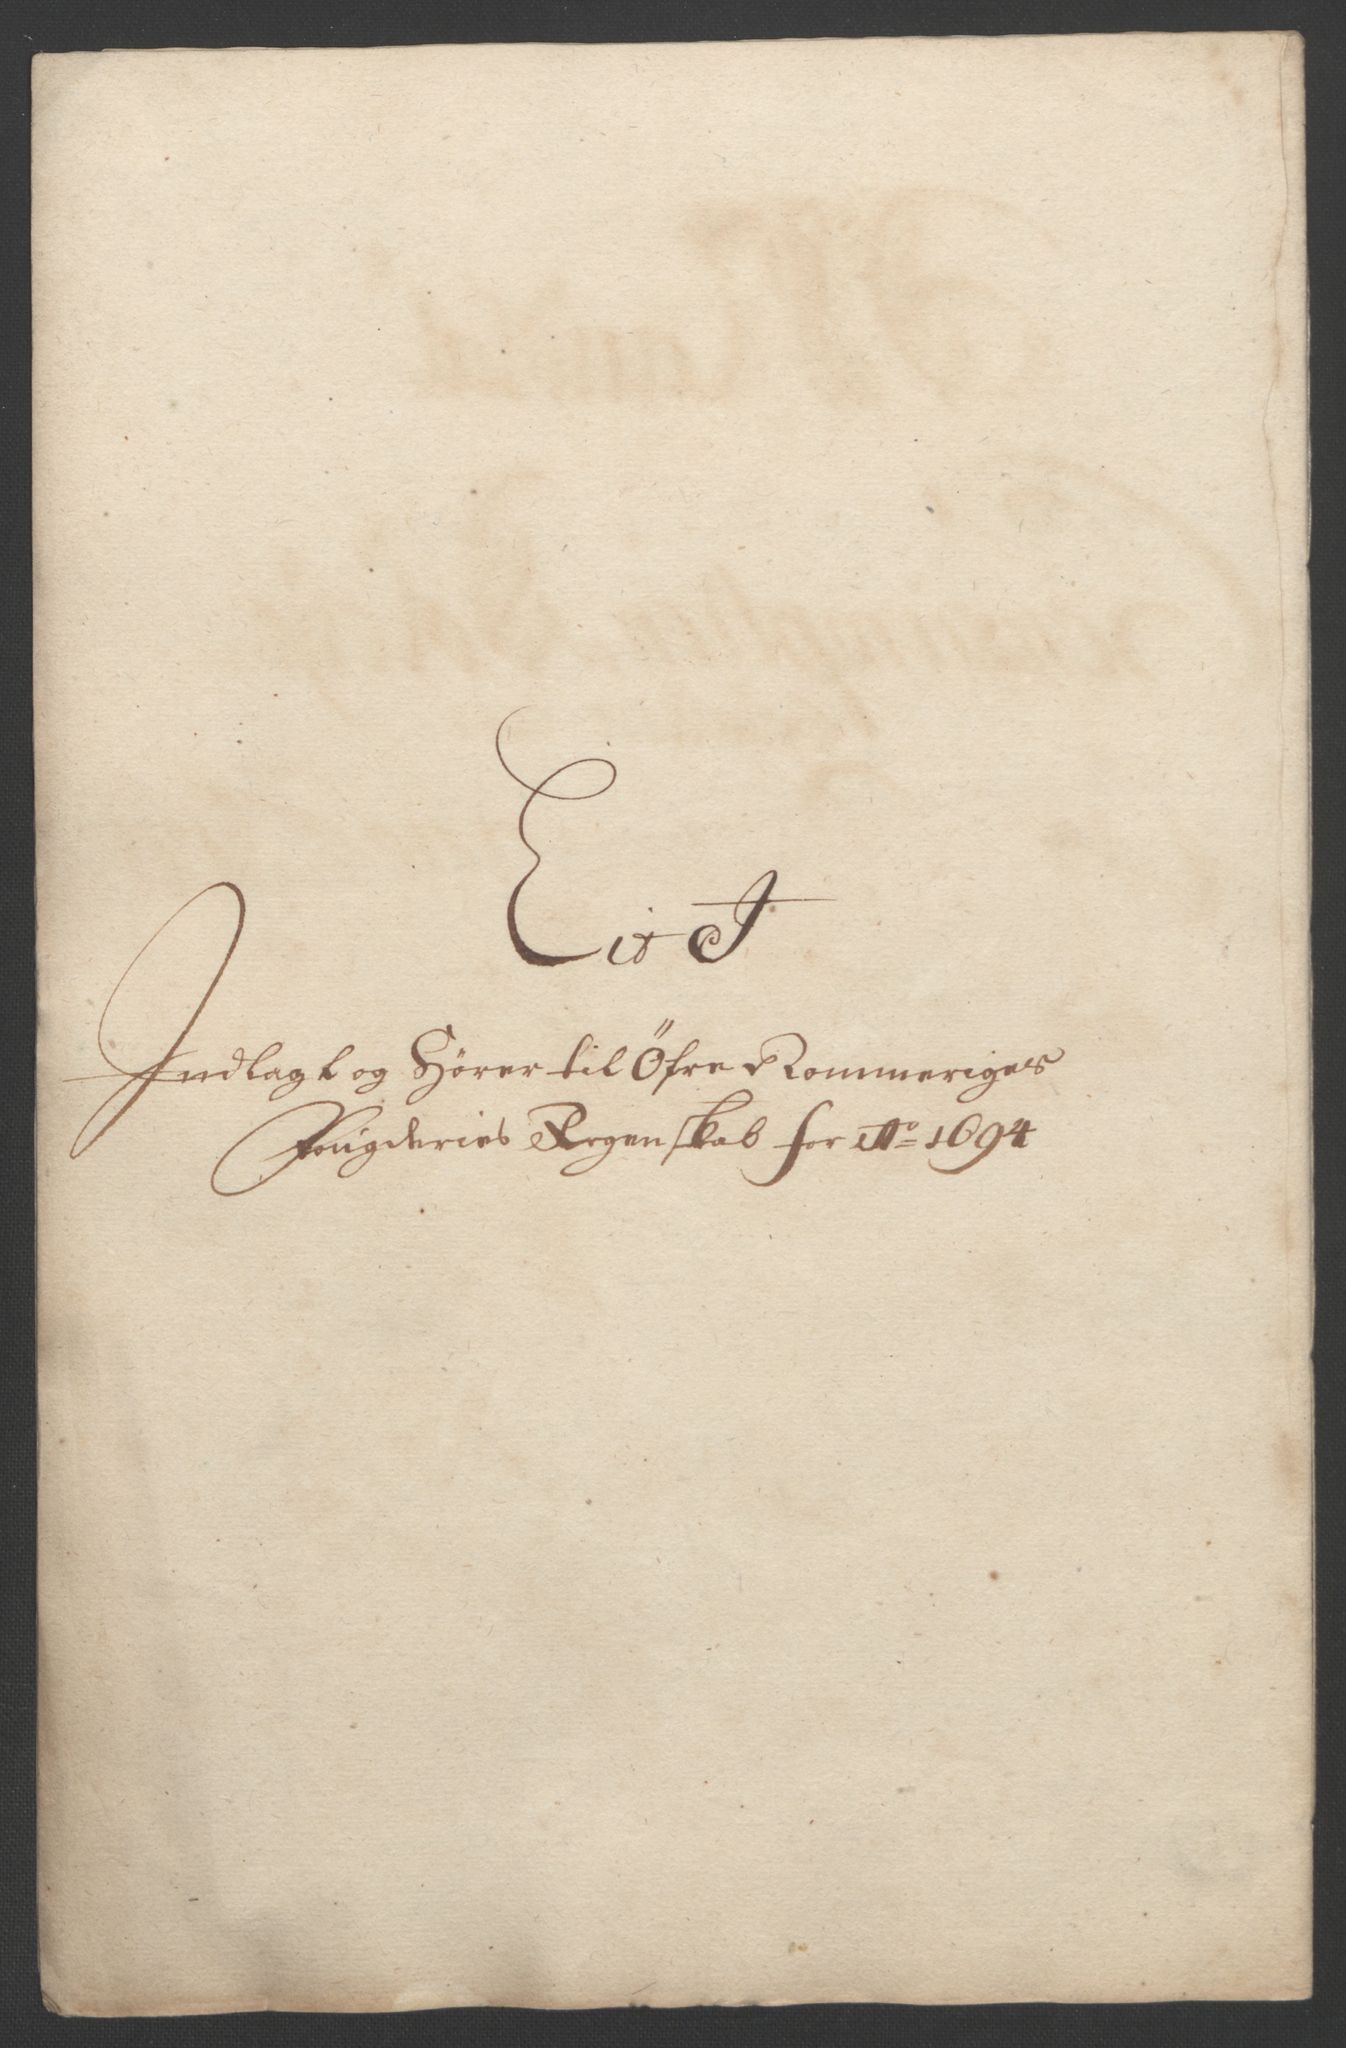 Lit J
Indlagt og Hører til Öfre Rommeriges
Fougderies Regenskab for Ao 1694